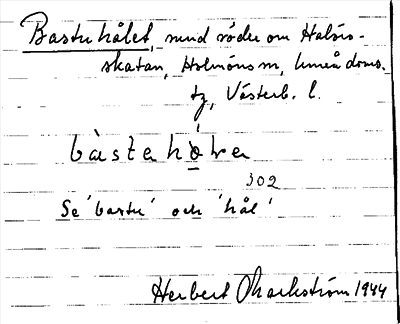 Bastuhålet, sund söder om Halörs-
skatan, Holmöns sn, Umeå doms.
tg, Västerb. l.
bàstehó̱ḷe
302
Se 'bastu' och 'hål'
Herbert Markström 1944